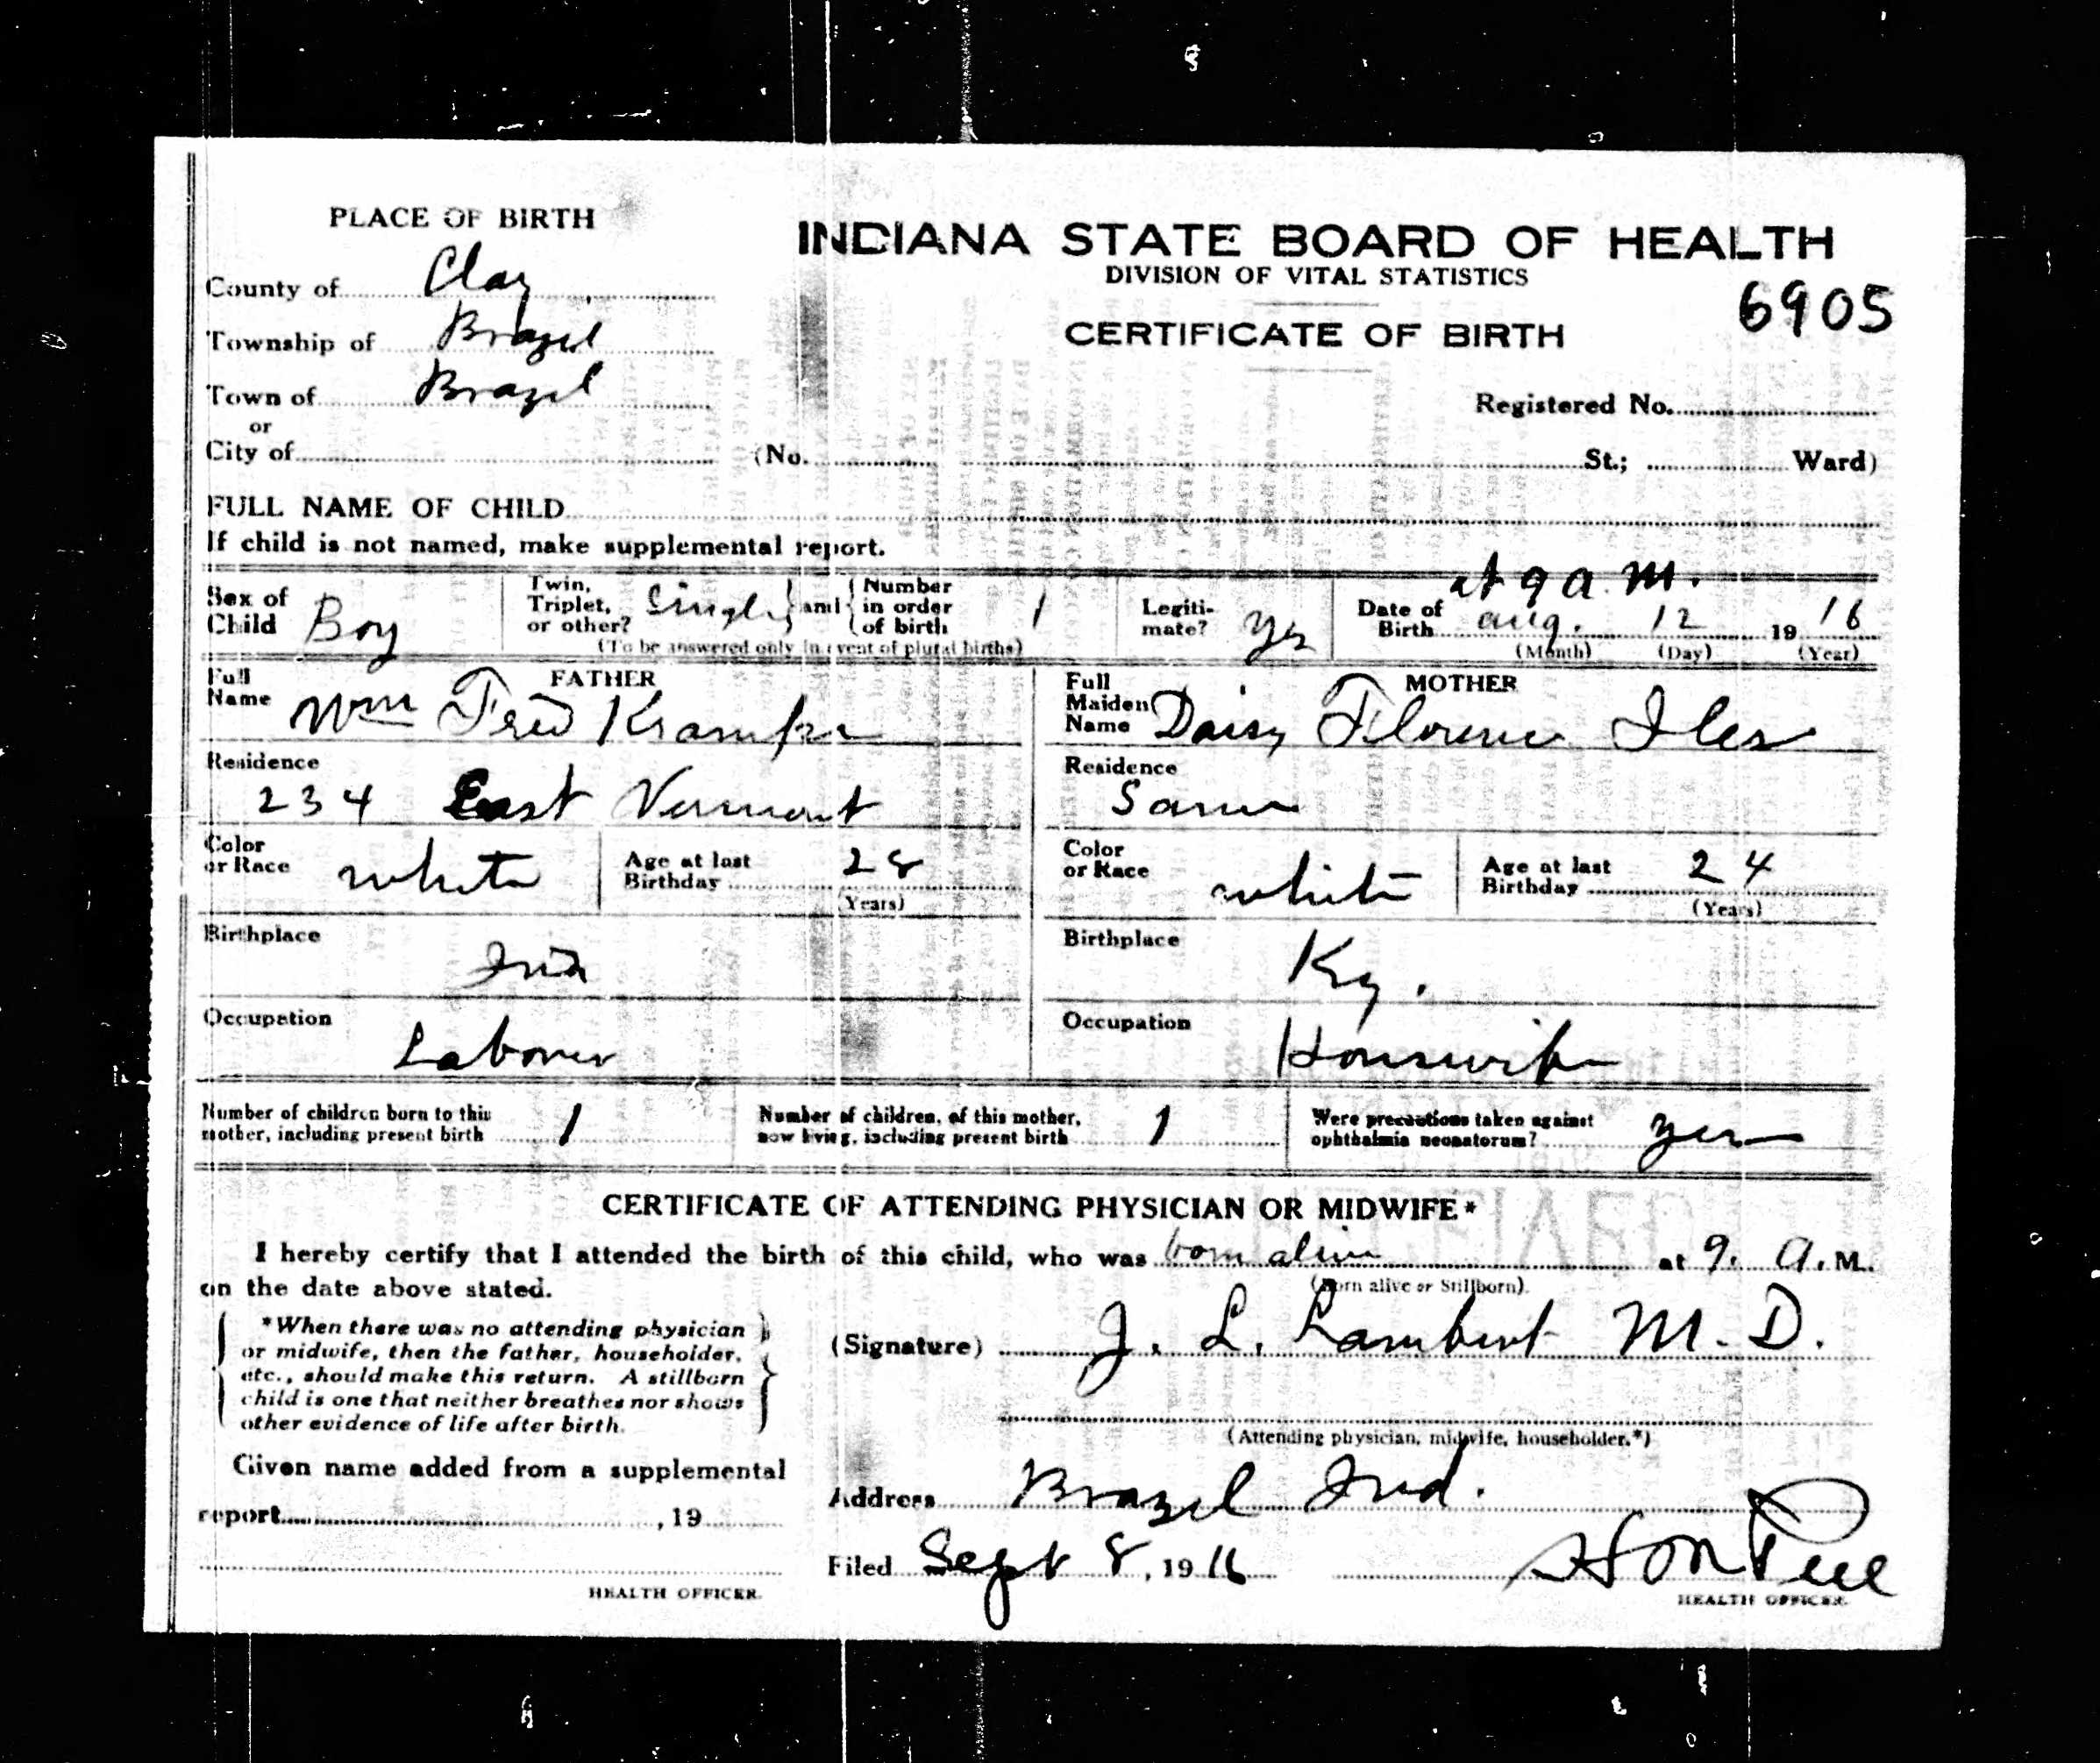 PLACE OF BIRTH
INDIANA STATE BOARD OF HEALTH
DIVISION OF VITAL STATISTICS
CERTIFICATE OF BIRTH
6905
County of Clay
Township of Brazil
Town of Brazil
or
City of
Registered No.
(No. St.; Ward)
FULL NAME OF CHILD
If child is not named, make supplemental report.
Sex of Child Boy
Twin, Triplet, or other? Single and Number in order of birth 1
(To be answered only in event of plural births)
Legiti-mate? yes
at 9 a.m.
Date of Birth aug. 12 1916
(Month) (Day) (Year)
FATHER
Full Name Wm Fred Krampe
MOTHER
Full Maiden Name Daisy Florence Iles
Residence 234 East Vermont
Residence Same
Color or Race white
Age at last Birthday 28
(Years)
Color or Race white
Age at last Birthday 24
(Years)
Birthplace Ind
Birthplace Ky.
Occupation Laborer
Occupation Housewife
Number of children born to this mother, including present birth 1
Number of children, of this mother, now living, including present birth 1
Were precautions taken against ophthalmia neonatorum? yes
CERTIFICATE OF ATTENDING PHYSICIAN OR MIDWIFE*
I hereby certify that I attended the birth of this child, who was born alive at 9. A.M.
(Born alive or Stillborn).
on the date above stated.
*When there was no attending physician
or midwife, then the father, householder,
etc., should make this return. A stillborn
child is one that neither breathes nor shows
other evidence of life after birth.
(Signature) J. L. Lambert M.D.
(Attending physician, midwife, householder.*)
Given name added from a supplemental
report , 19
HEALTH OFFICER.
Address Brazil Ind.
Filed Sept 8, 1916
HEALTH OFFICER.